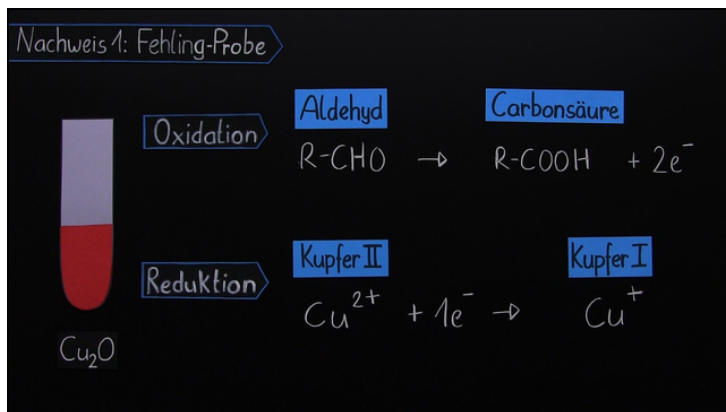 Nachweis 1: Fehling-Probe
Oxidation
Aldehyd
Carbonsäure
R-CHO → R-COOH + 2e⁻
Reduktion
Kupfer II
Kupfer I
Cu²⁺ + 1e⁻ → Cu⁺
Cu₂O